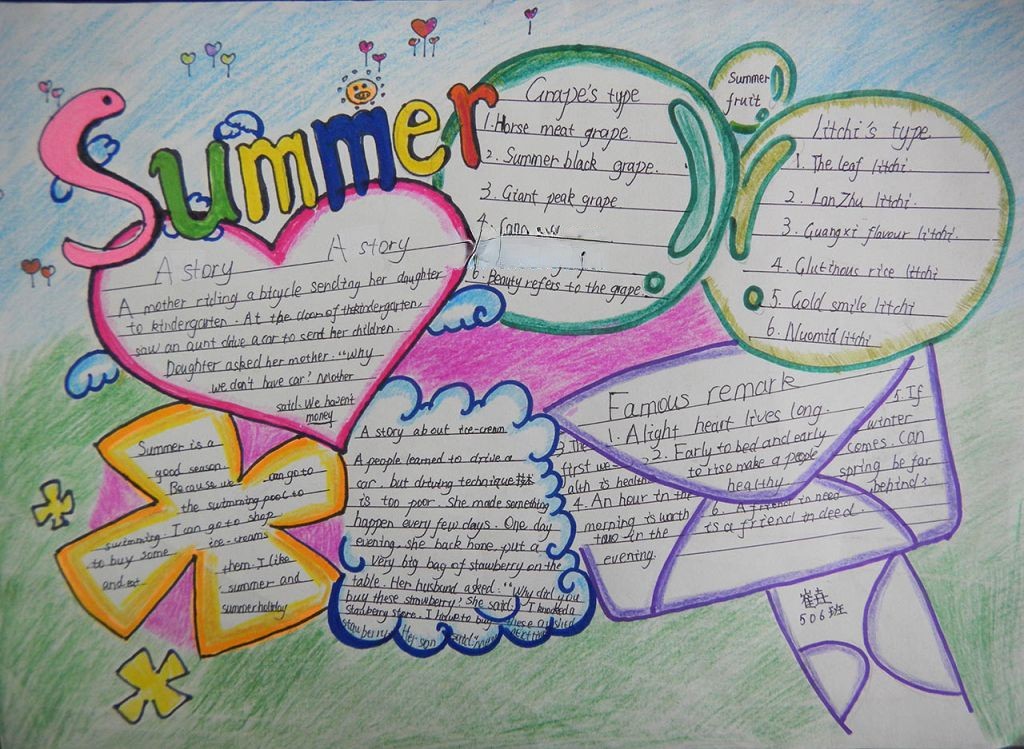 Summer
Summer
fruit
Grape's type
1. Horse meat grape.
2. Summer black grape.
3. Giant peak grape
4.
6. Beauty refers to the grape.
litchi's type
1. The leaf litchi.
2. LanZhu litchi.
3. Guangxi flavour litchi.
4. Glutinous rice litchi
5. Gold smile litchi
6. Nuomid litchi
A story A story
A mother riding a bicycle sending her daughter
to kindergarten. At the door of the kindergarten,
saw an aunt drive a car to send her children.
Daughter asked her mother. "Why
we don't have car? Mother
said. We haven't
money
Summer is a
good season.
Because we can go to
the swimming pool to
swimming. I can go to shop
to buy some ice-creams
and eat
them. I like
summer and
summer holiday
A story about ice-cream
A people learned to drive a
car, but driving technique
is too poor. She made something
happen every few days. One day
evening, she back home, put a
very big bag of stawberry on the
table. Her husband asked. "Why did you
buy these strawberry? She said. I knocked a
Famous remark
1. A light heart lives long.
2. Early to bed and early
to rise make a people
healthy
3. The
first we-
alth is health
4. An hour in the
morning is worth
two in the
evening.
5. If
winter
comes can
spring be far
behind?
6. A friend in need
is a friend in deed.
506班